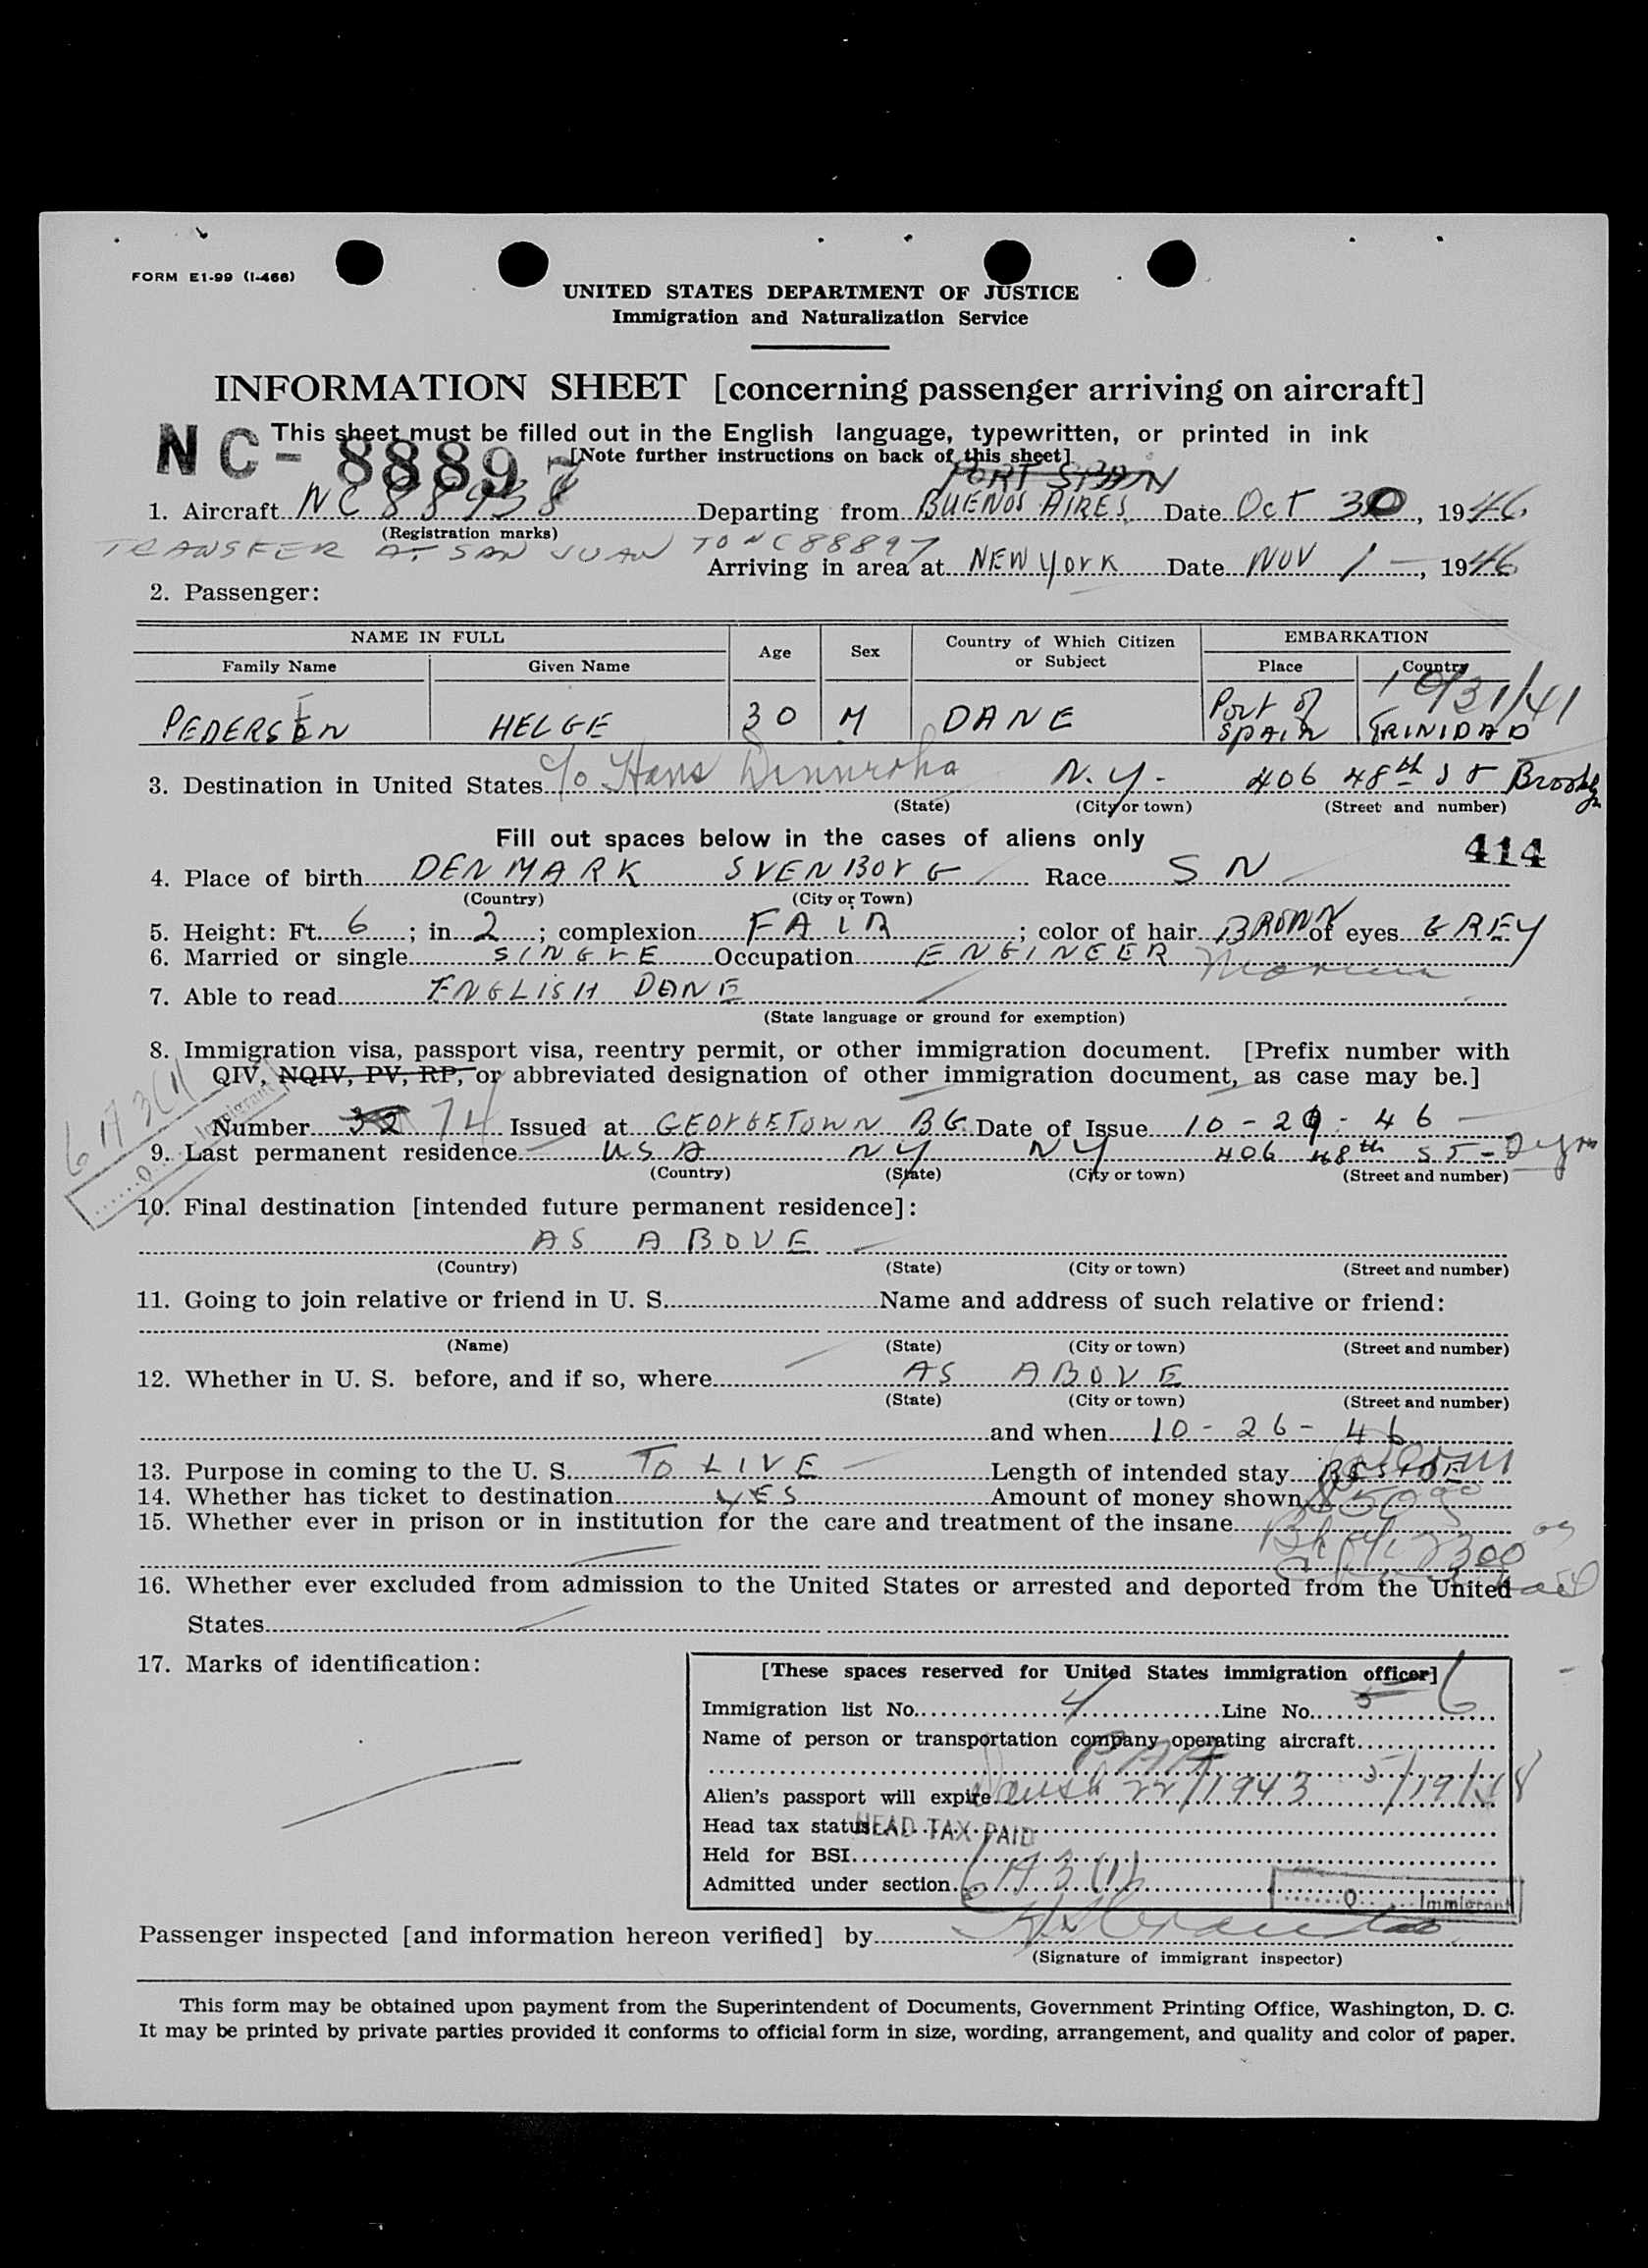 FORM E1-99 (I-466)
UNITED STATES DEPARTMENT OF JUSTICE
Immigration and Naturalization Service
INFORMATION SHEET [concerning passenger arriving on aircraft]
This sheet must be filled out in the English language, typewritten, or printed in ink
NC-88897
[Note further instructions on back of this sheet]
PORT SPAIN
1. Aircraft NC 88938 Departing from BUENOS AIRES Date Oct 30, 1946
(Registration marks)
TRANSFER AT SAN JUAN TO NC88897
Arriving in area at NEW YORK Date NOV 1 -, 1946
2. Passenger:
NAME IN FULL Age Sex Country of Which Citizen or Subject EMBARKATION
Family Name Given Name Place Country
10/31/41
PEDERSEN HELGE 30 M DANE Port of SPAIN TRINIDAD
3. Destination in United States c/o Hans N.Y. 406 48th ST Brooklyn
(State) (City or town) (Street and number)
Fill out spaces below in the cases of aliens only
414
4. Place of birth DENMARK SVENBORG Race S N
(Country) (City or Town)
5. Height: Ft. 6; in 2; complexion FAIR; color of hair BROWN of eyes GREY
6. Married or single SINGLE Occupation ENGINEER
7. Able to read ENGLISH DANE
(State language or ground for exemption)
8. Immigration visa, passport visa, reentry permit, or other immigration document. [Prefix number with
QIV, NQIV, PV, RP, or abbreviated designation of other immigration document, as case may be.]
6 1A 3(1)
Q Immigrant
Number 32 74 Issued at GEORGETOWN BG. Date of Issue 10-29-46
9. Last permanent residence USA NY NY 406 48th ST - 2 yrs
(Country) (State) (City or town) (Street and number)
10. Final destination [intended future permanent residence]:
AS ABOVE
(Country) (State) (City or town) (Street and number)
11. Going to join relative or friend in U. S. Name and address of such relative or friend:
(Name) (State) (City or town) (Street and number)
12. Whether in U. S. before, and if so, where AS ABOVE
(State) (City or town) (Street and number)
and when 10-26-46
13. Purpose in coming to the U. S. TO LIVE Length of intended stay RESIDE
14. Whether has ticket to destination YES Amount of money shown $50
15. Whether ever in prison or in institution for the care and treatment of the insane
2300
16. Whether ever excluded from admission to the United States or arrested and deported from the United
States
17. Marks of identification:
[These spaces reserved for United States immigration officer]
Immigration list No. 4 Line No. 5 6
Name of person or transportation company operating aircraft
PAA
Alien's passport will expire Danish 22/1943 5/19/48
Head tax status HEAD TAX PAID
Held for BSI
Admitted under section 6 1A 3(1) Q Immigrant
Passenger inspected [and information hereon verified] by
(Signature of immigrant inspector)
This form may be obtained upon payment from the Superintendent of Documents, Government Printing Office, Washington, D. C.
It may be printed by private parties provided it conforms to official form in size, wording, arrangement, and quality and color of paper.